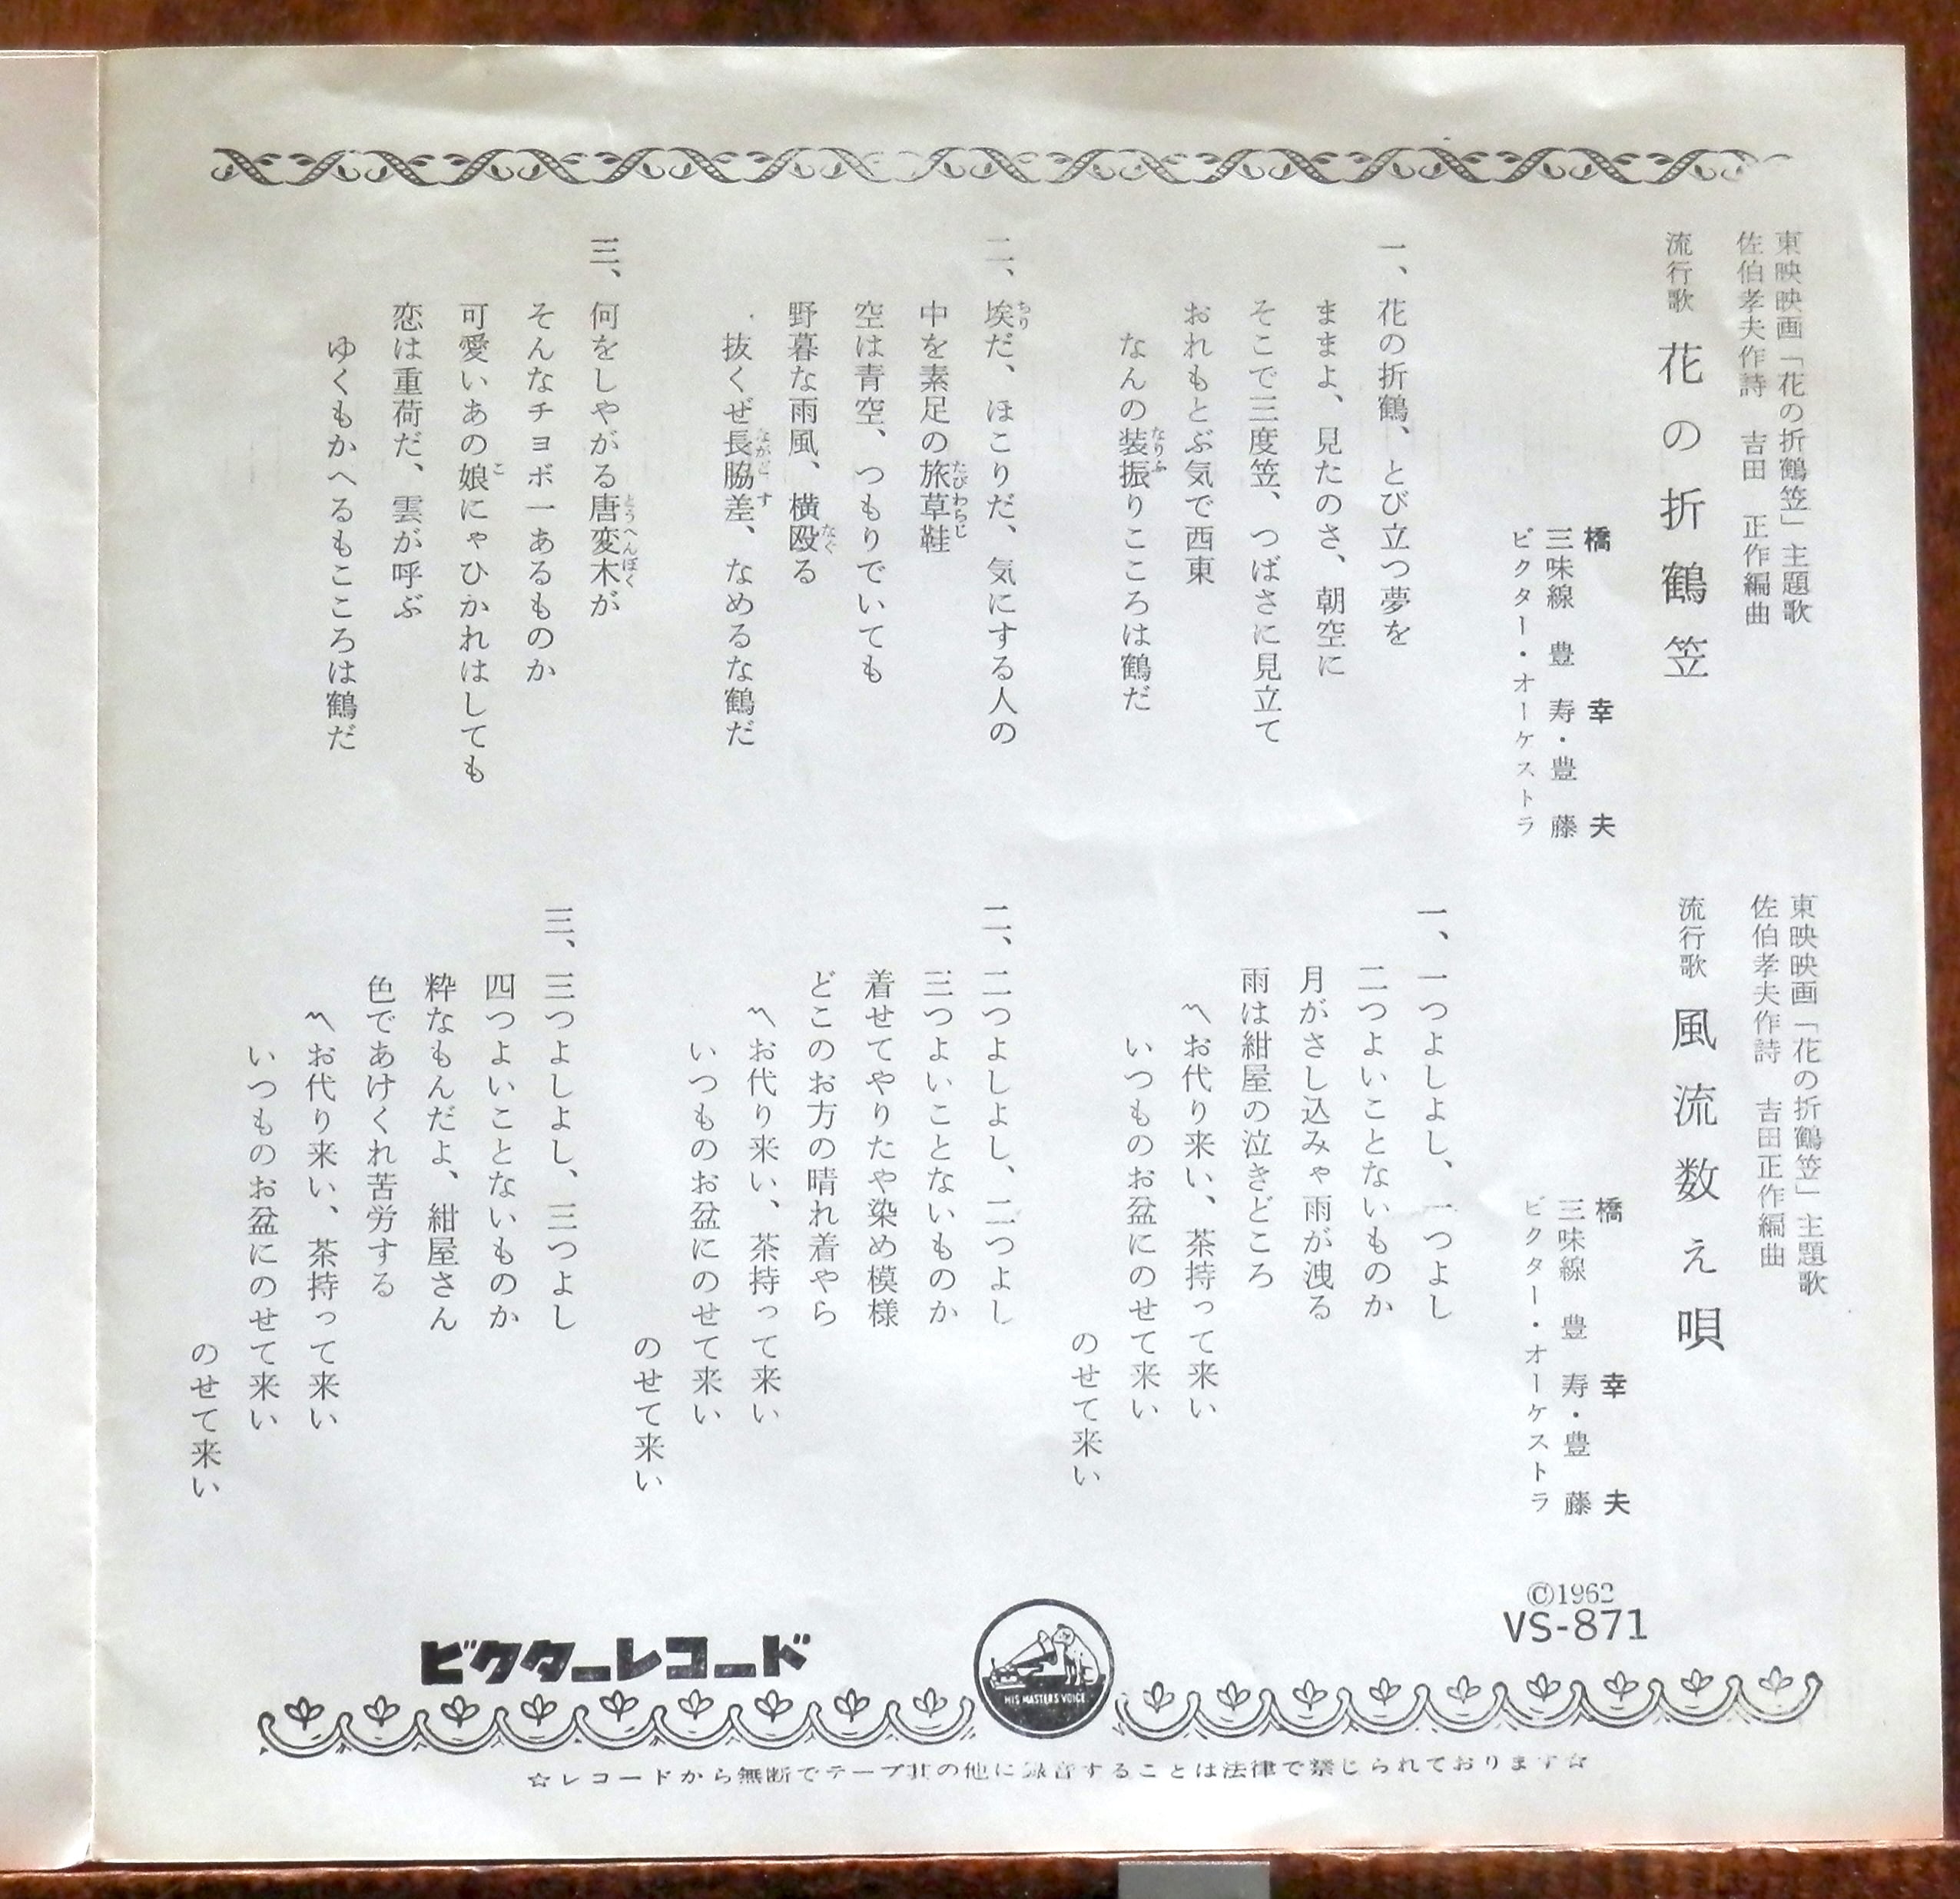 東映映画「花の折鶴笠」主題歌
佐伯孝夫作詩　吉田　正作編曲
流行歌　花の折鶴笠
橋　幸　夫
三味線　豊　寿・豊　藤
ビクター・オーケストラ
一、花の折鶴、とび立つ夢を
ままよ、見たのさ、朝空に
そこで三度笠、つばさに見立て
おれもとぶ気で西東
なんの装振りこころは鶴だ
二、埃だ、ほこりだ、気にする人の
中を素足の旅草鞋
空は青空、つもりでいても
野暮な雨風、横殴る
抜くぜ長脇差、なめるな鶴だ
三、何をしやがる唐変木が
そんなチョボ一あるものか
可愛いあの娘にゃひかれはしても
恋は重荷だ、雲が呼ぶ
ゆくもかへるもこころは鶴だ
東映映画「花の折鶴笠」主題歌
佐伯孝夫作詩　吉田正作編曲
流行歌　風流数え唄
橋　幸　夫
三味線　豊　寿・豊　藤
ビクター・オーケストラ
一、一つよしよし、一つよし
二つよいことないものか
月がさし込みゃ雨が洩る
雨は紺屋の泣きどころ
〽お代り来い、茶持って来い
いつものお盆にのせて来い
のせて来い
二、二つよしよし、二つよし
三つよいことないものか
着せてやりたや染め模様
どこのお方の晴れ着やら
〽お代り来い、茶持って来い
いつものお盆にのせて来い
のせて来い
三、三つよしよし、三つよし
四つよいことないものか
粋なもんだよ、紺屋さん
色であけくれ苦労する
〽お代り来い、茶持って来い
いつものお盆にのせて来い
のせて来い
©1962
VS-871
ビクターレコード
HIS MASTERS VOICE
☆レコードから無断でテープ其の他に録音することは法律で禁じられております☆